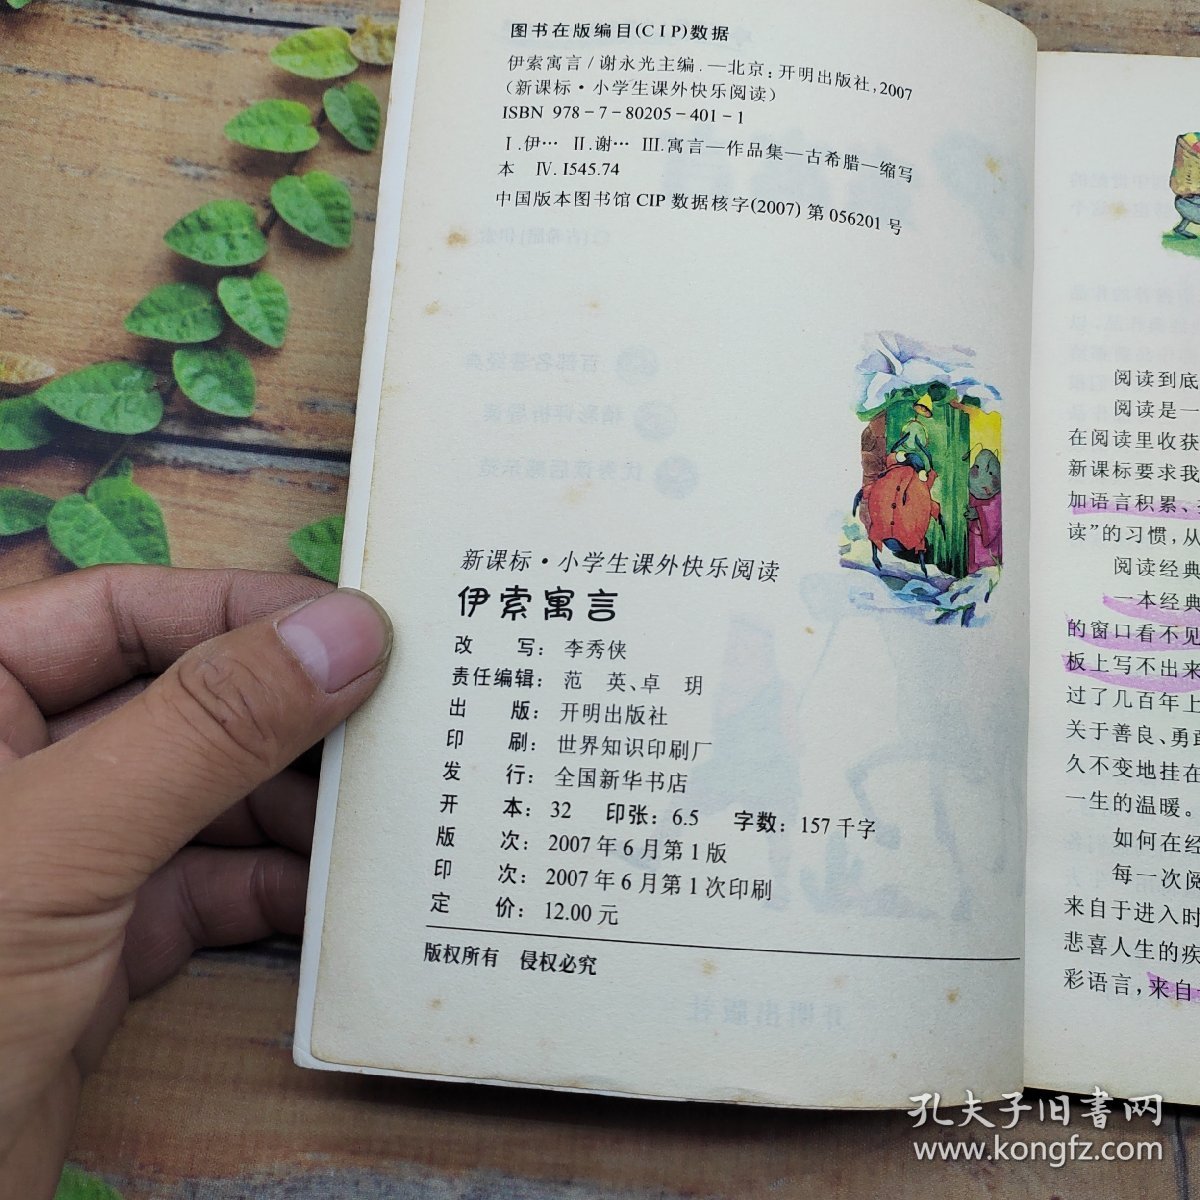 图书在版编目(CIP)数据
伊索寓言/谢永光主编.—北京:开明出版社,2007
(新课标·小学生课外快乐阅读)
ISBN 978-7-80205-401-1
Ⅰ.伊… Ⅱ.谢… Ⅲ.寓言—作品集—古希腊—缩写
本 Ⅳ.I545.74
中国版本图书馆CIP数据核字(2007)第056201号
新课标·小学生课外快乐阅读
伊索寓言
改 写:李秀侠
责任编辑:范 英、卓 玥
出 版:开明出版社
印 刷:世界知识印刷厂
发 行:全国新华书店
开 本:32 印张:6.5 字数:157千字
版 次:2007年6月第1版
印 次:2007年6月第1次印刷
定 价:12.00元
版权所有 侵权必究
阅读到底
阅读是一
在阅读里收获
新课标要求我
加语言积累、
读”的习惯,从
阅读经典
一本经典
的窗口看不见
板上写不出来
过了几百年上
关于善良、勇敢
久不变地挂在
一生的温暖。
如何在经
每一次阅
来自于进入时
悲喜人生的疾
彩语言,来自
孔夫子旧书网
www.kongfz.com